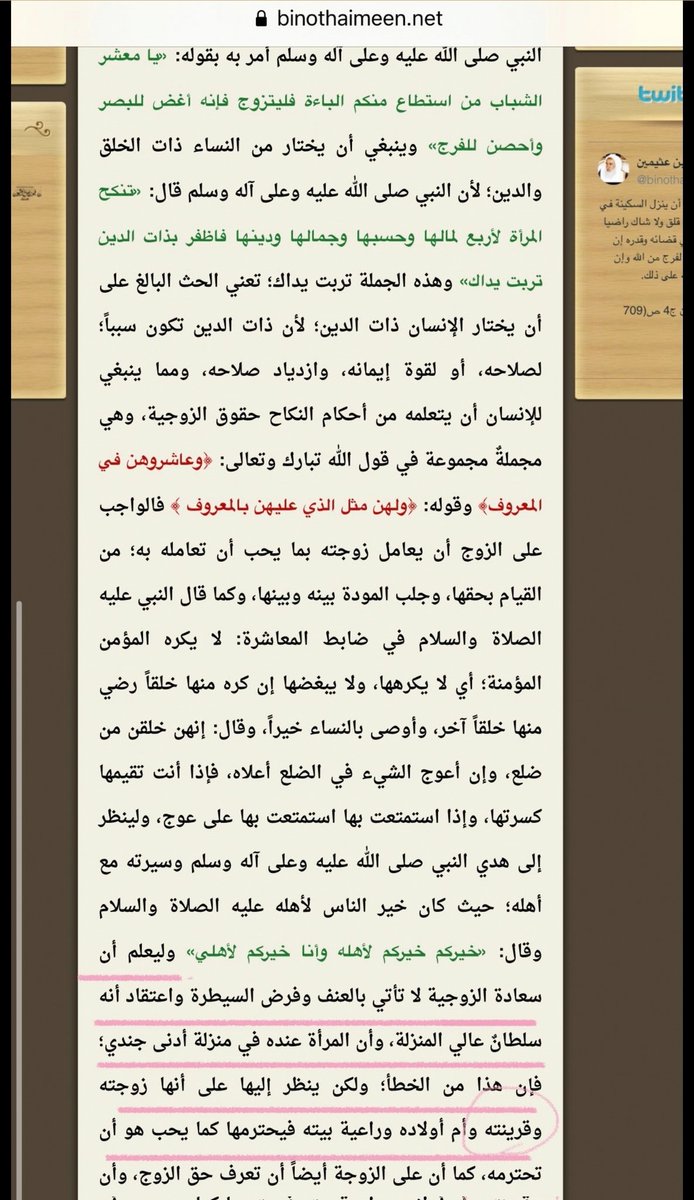 binothaimeen.net
النبي صلى الله عليه وعلى آله وسلم أمر به بقوله: «يا معشر
الشباب من استطاع منكم الباءة فليتزوج فإنه أغض للبصر
وأحصن للفرج» وينبغي أن يختار من النساء ذات الخلق
والدين؛ لأن النبي صلى الله عليه وعلى آله وسلم قال: «تنكح
المرأة لأربع لمالها وحسبها وجمالها ودينها فاظفر بذات الدين
تربت يداك» وهذه الجملة تربت يداك؛ تعني الحث البالغ على
أن يختار الإنسان ذات الدين؛ لأن ذات الدين تكون سبباً؛
لصلاحه، أو لقوة إيمانه، وازدياد صلاحه، ومما ينبغي
للإنسان أن يتعلمه من أحكام النكاح حقوق الزوجية، وهي
مجملةٌ مجموعة في قول الله تبارك وتعالى: ﴿وعاشروهن في
المعروف﴾ وقوله: ﴿ولهن مثل الذي عليهن بالمعروف ﴾ فالواجب
على الزوج أن يعامل زوجته بما يحب أن تعامله به؛ من
القيام بحقها، وجلب المودة بينه وبينها، وكما قال النبي عليه
الصلاة والسلام في ضابط المعاشرة: لا يكره المؤمن
المؤمنة؛ أي لا يكرهها، ولا يبغضها إن كره منها خلقاً رضي
منها خلقاً آخر، وأوصى بالنساء خيراً، وقال: إنهن خلقن من
ضلع، وإن أعوج الشيء في الضلع أعلاه، فإذا أنت تقيمها
كسرتها، وإذا استمتعت بها استمتعت بها على عوج، ولينظر
إلى هدي النبي صلى الله عليه وعلى آله وسلم وسيرته مع
أهله؛ حيث كان خير الناس لأهله عليه الصلاة والسلام
وقال: «خيركم خيركم لأهله وأنا خيركم لأهلي» وليعلم أن
سعادة الزوجية لا تأتي بالعنف وفرض السيطرة واعتقاد أنه
سلطانٌ عالي المنزلة، وأن المرأة عنده في منزلة أدنى جندي؛
فإن هذا من الخطأ؛ ولكن ينظر إليها على أنها زوجته
وقرينته وأم أولاده وراعية بيته فيحترمها كما يحب هو أن
تحترمه، كما أن على الزوجة أيضاً أن تعرف حق الزوج، وأن
twit
ن عثيمين
@binotha
أن ينزل السكينة في
قلق ولا شاك راضيا
ي قضائه وقدره إن
لفرج من الله وإن
ه على ذلك.
ن ج4 ص(709